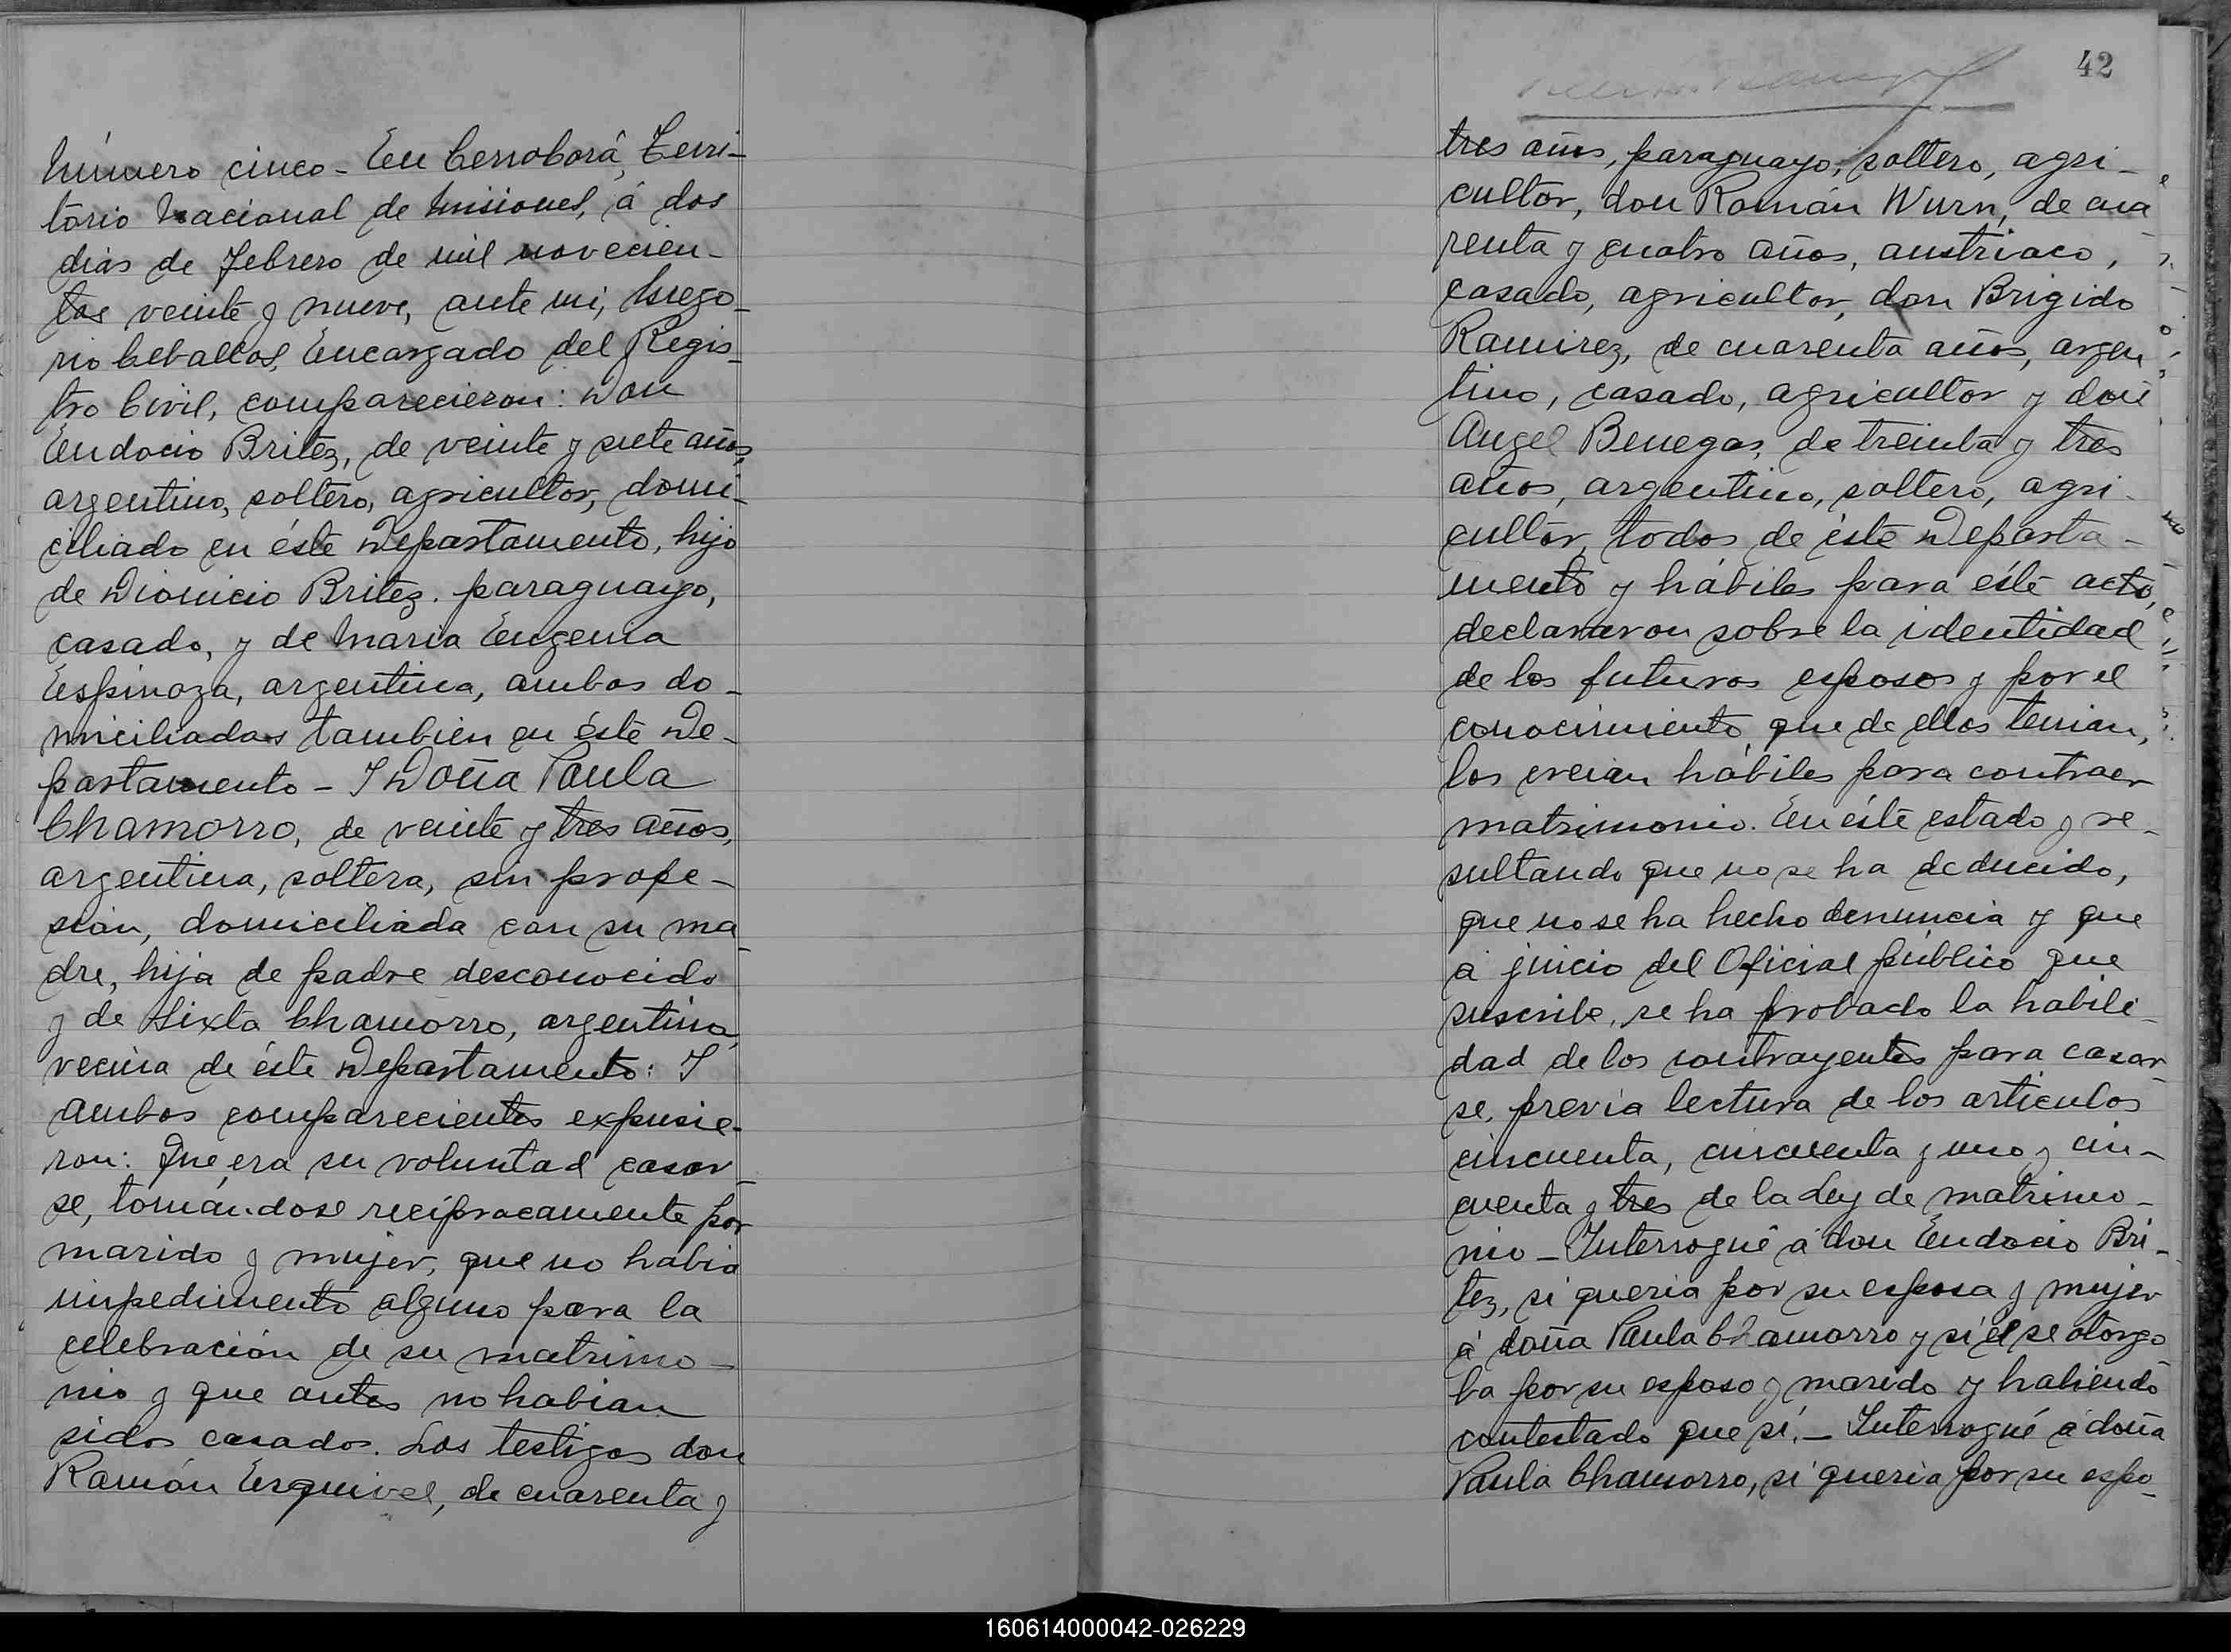 Número cinco - En Cerrocorá, Terri-
torio Nacional de Misiones, á dos
dias de Febrero de mil novecien-
tos veinte y nueve, ante mi, Grego-
rio Ceballos, Encargado del Regis-
tro Civil, comparecieron: Don
Eudocio Britez, de veinte y siete años,
argentino, soltero, agricultor, domi-
ciliado en éste Departamento, hijo
de Dionicio Britez. paraguayo,
casado, y de Maria Eugenia
Espinoza, argentina, ambos do-
miciliados tambien en éste De-
partamento - Y Doña Paula
Chamorro, de veinte y tres años,
argentina, soltera, sin profe-
sión, domiciliada con su ma-
dre, hija de padre desconocido
y de Sixta Chamorro, argentina,
vecina de éste Departamento: Y
ambos comparecientes expusie-
ron: Que era su voluntad casar-
se, tomándose recíprocamente por
marido y mujer, que no habia
impedimento alguno para la
celebración de su matrimo-
nio y que antes no habian
sidos casados. Los testigos don
Ramón Esquivel, de cuarenta y
42
tres años, paraguayo, soltero, agri-
cultor, don Román Wurn, de cua
renta y cuatro años, austriaco,
casado, agricultor, don Brigido
Ramirez, de cuarenta años, argen
tino, casado, agricultor y don
Angel Benegas, de treinta y tres
años, argentino, soltero, agri-
cultor, todos de éste Departa-
mento y hábiles para éste acto,
declararon sobre la identidad
de los futuros esposos y por el
conocimiento que de ellos tenian,
los creian hábiles para contraer
matrimonio. En éste estado y re-
sultando que no se ha deducido,
que no se ha hecho denuncia y que
a juicio del Oficial público que
suscribe, se ha probado la habili-
dad de los contrayentes para casar-
se, previa lectura de los articulos
cincuenta, cincuenta y uno y cin-
cuenta y tres de la Ley de matrimo-
nio - Interrogué a don Eudocio Bri-
tez, si queria por su esposa y mujer
á doña Paula Chamorro y si él se otorga-
ba por su esposo y marido y habiendo
contestado que sí. - Interrogué a doña
Paula Chamorro, si queria por su espo-
160614000042-026229